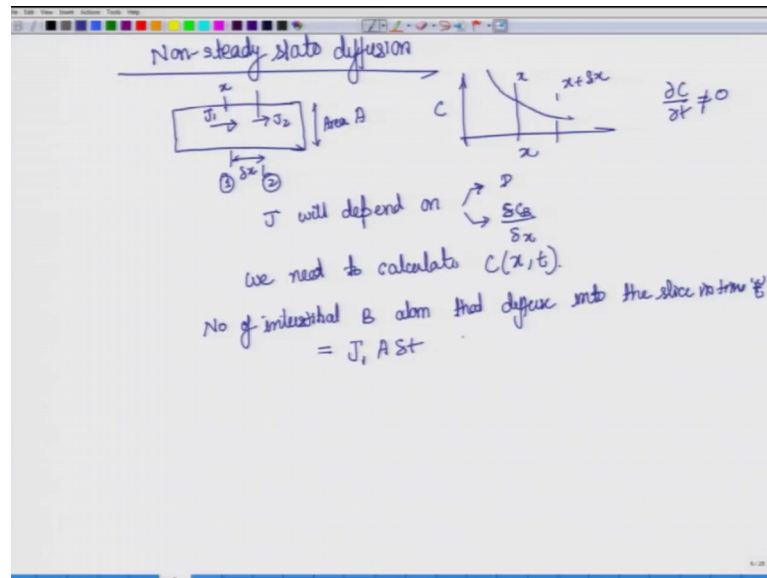 Non-steady state diffusion
x
J₁ → J₂ Area A
δx
① ②
C
x x+δx
x
∂C/∂t ≠ 0
J will depend on D
δC_B/δx
We need to calculate C(x,t).
No of interstitial B atom that diffuse into the slice in time 't'
= J₁ A δt